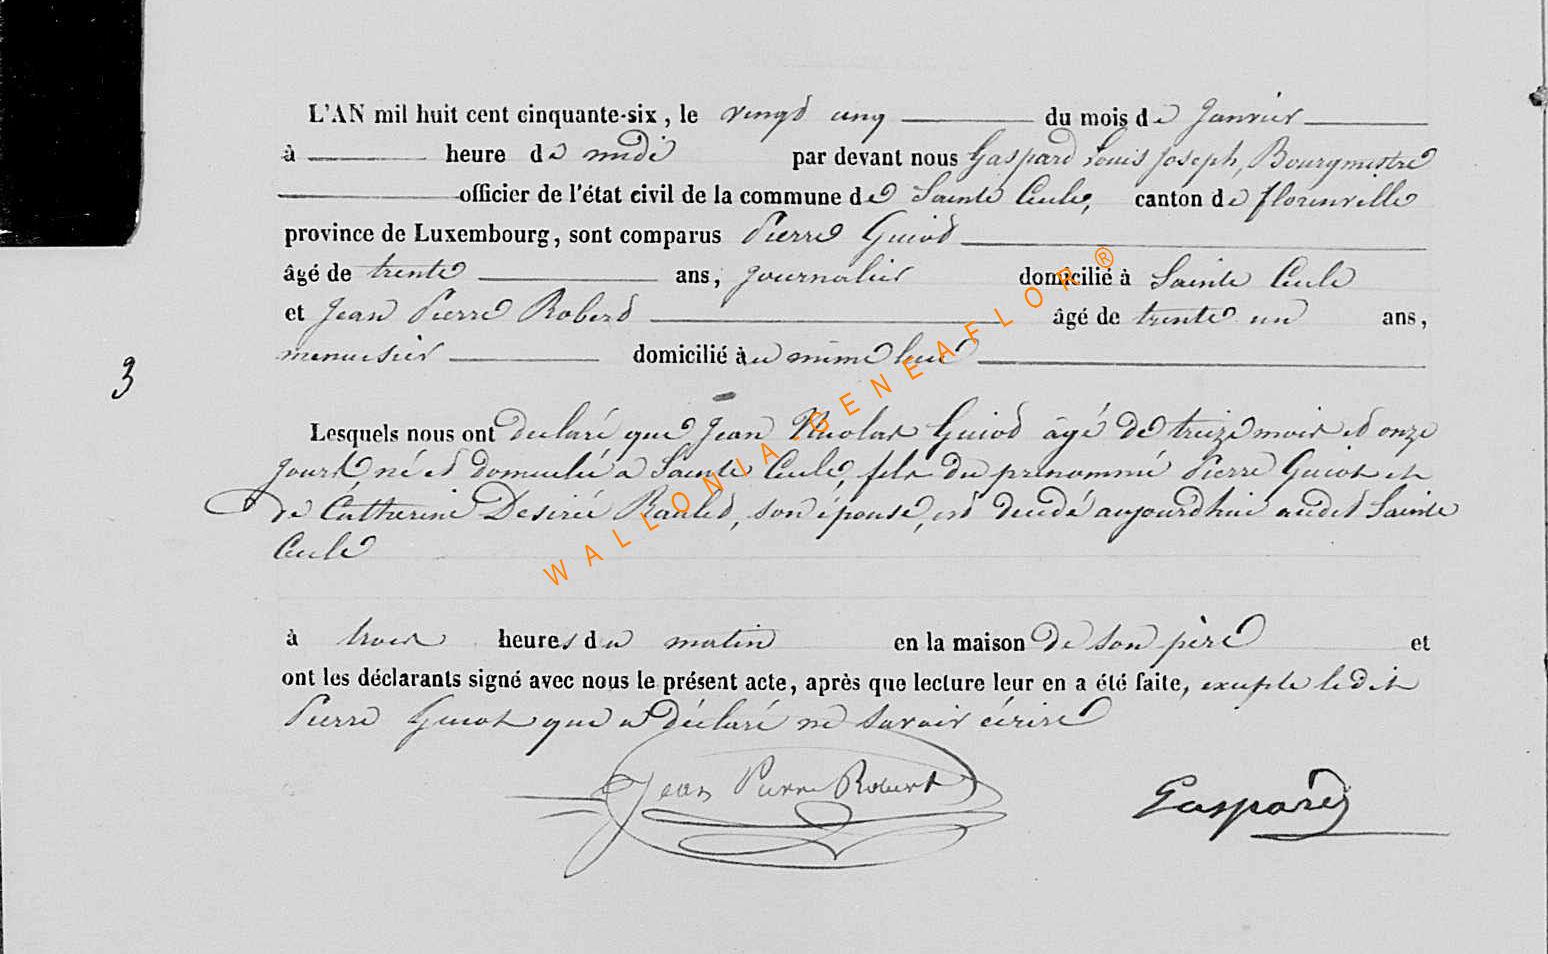 L'AN mil huit cent cinquante-six, le vingt cinq du mois de Janvier
à heure de midi par devant nous Gaspard Louis Joseph, Bourgmestre
officier de l'état civil de la commune de Sainte Cécile, canton de florenville
province de Luxembourg, sont comparus Pierre Guiot
âgé de trente ans, journalier domicilié à Sainte Cécile
et Jean Pierre Robert âgé de trente un ans,
menuisier domicilié à u même lieu
3
Lesquels nous ont déclaré que Jean Nicolas Guiot âgé de treize mois et onze
jours, né et domicilié à Sainte Cécile, fils du prénommé Pierre Guiot et
de Catherine Desirée Raulet, son épouse, est décédé aujourd'hui audit Sainte
Cécile
à trois heures du matin en la maison de son père et
ont les déclarants signé avec nous le présent acte, après que lecture leur en a été faite, excepté ledit
Pierre Guiot que a déclaré ne savoir écrire
Jean Pierre Robert
Gaspard
WALLONIA-GENEAFLOR®